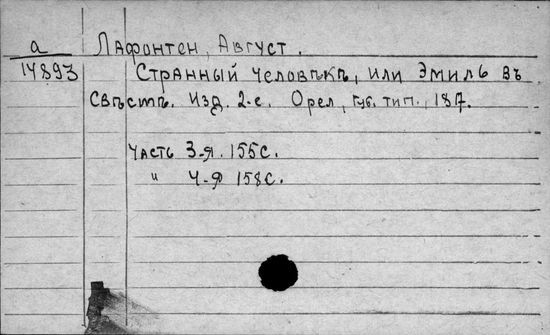 а
Лафонтен, Август.
14893
Странный человѣкъ, или Эмиль въ
свѣтѣ. Изд. 2-е. Орел, губ. тип., 1817.
Часть 3-я. 155 с.
" 4-я 158 с.